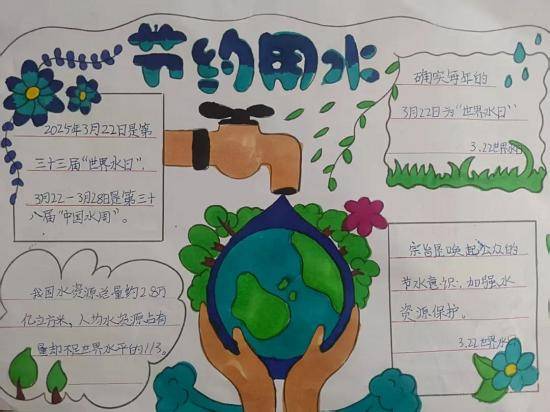 节约用水
2025年3月22日是第
三十三届"世界水日",
3月22-3月28日是第三十
八届"中国水周"。
确实每年的
3月22日为"世界水日"
3.22世界水日
我国水资源总量约2.8万
亿立方米,人均水资源占有
量却不足世界水平的1/3。
宗旨是唤起公众的
节水意识,加强水
资源保护。
3.22世界水日